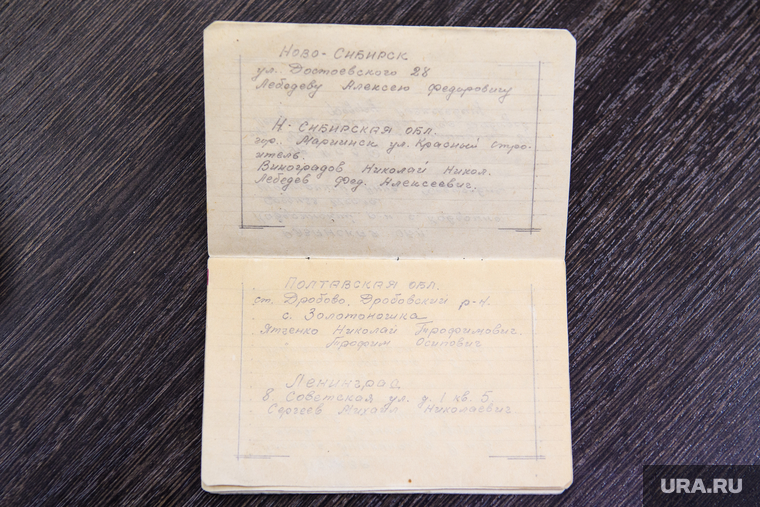 Ново-Сибирск
ул. Достоевского 28
Лебедеву Алексею Федоровичу
Н-Сибирская обл.
гор. Мариинск ул. Красный стро-
итель.
Виноградов Николай Никол.
Лебедев Фед. Алексеевич.
Полтавская обл.
ст. Дробово, Дробовский р-н.
с. Золотоношка
Ятченко Николай Трофимович.
" Трофим Осипович
Ленинград.
8 Советская ул. д. 1 кв. 5
Сергеев Михаил Николаевич
URA.RU